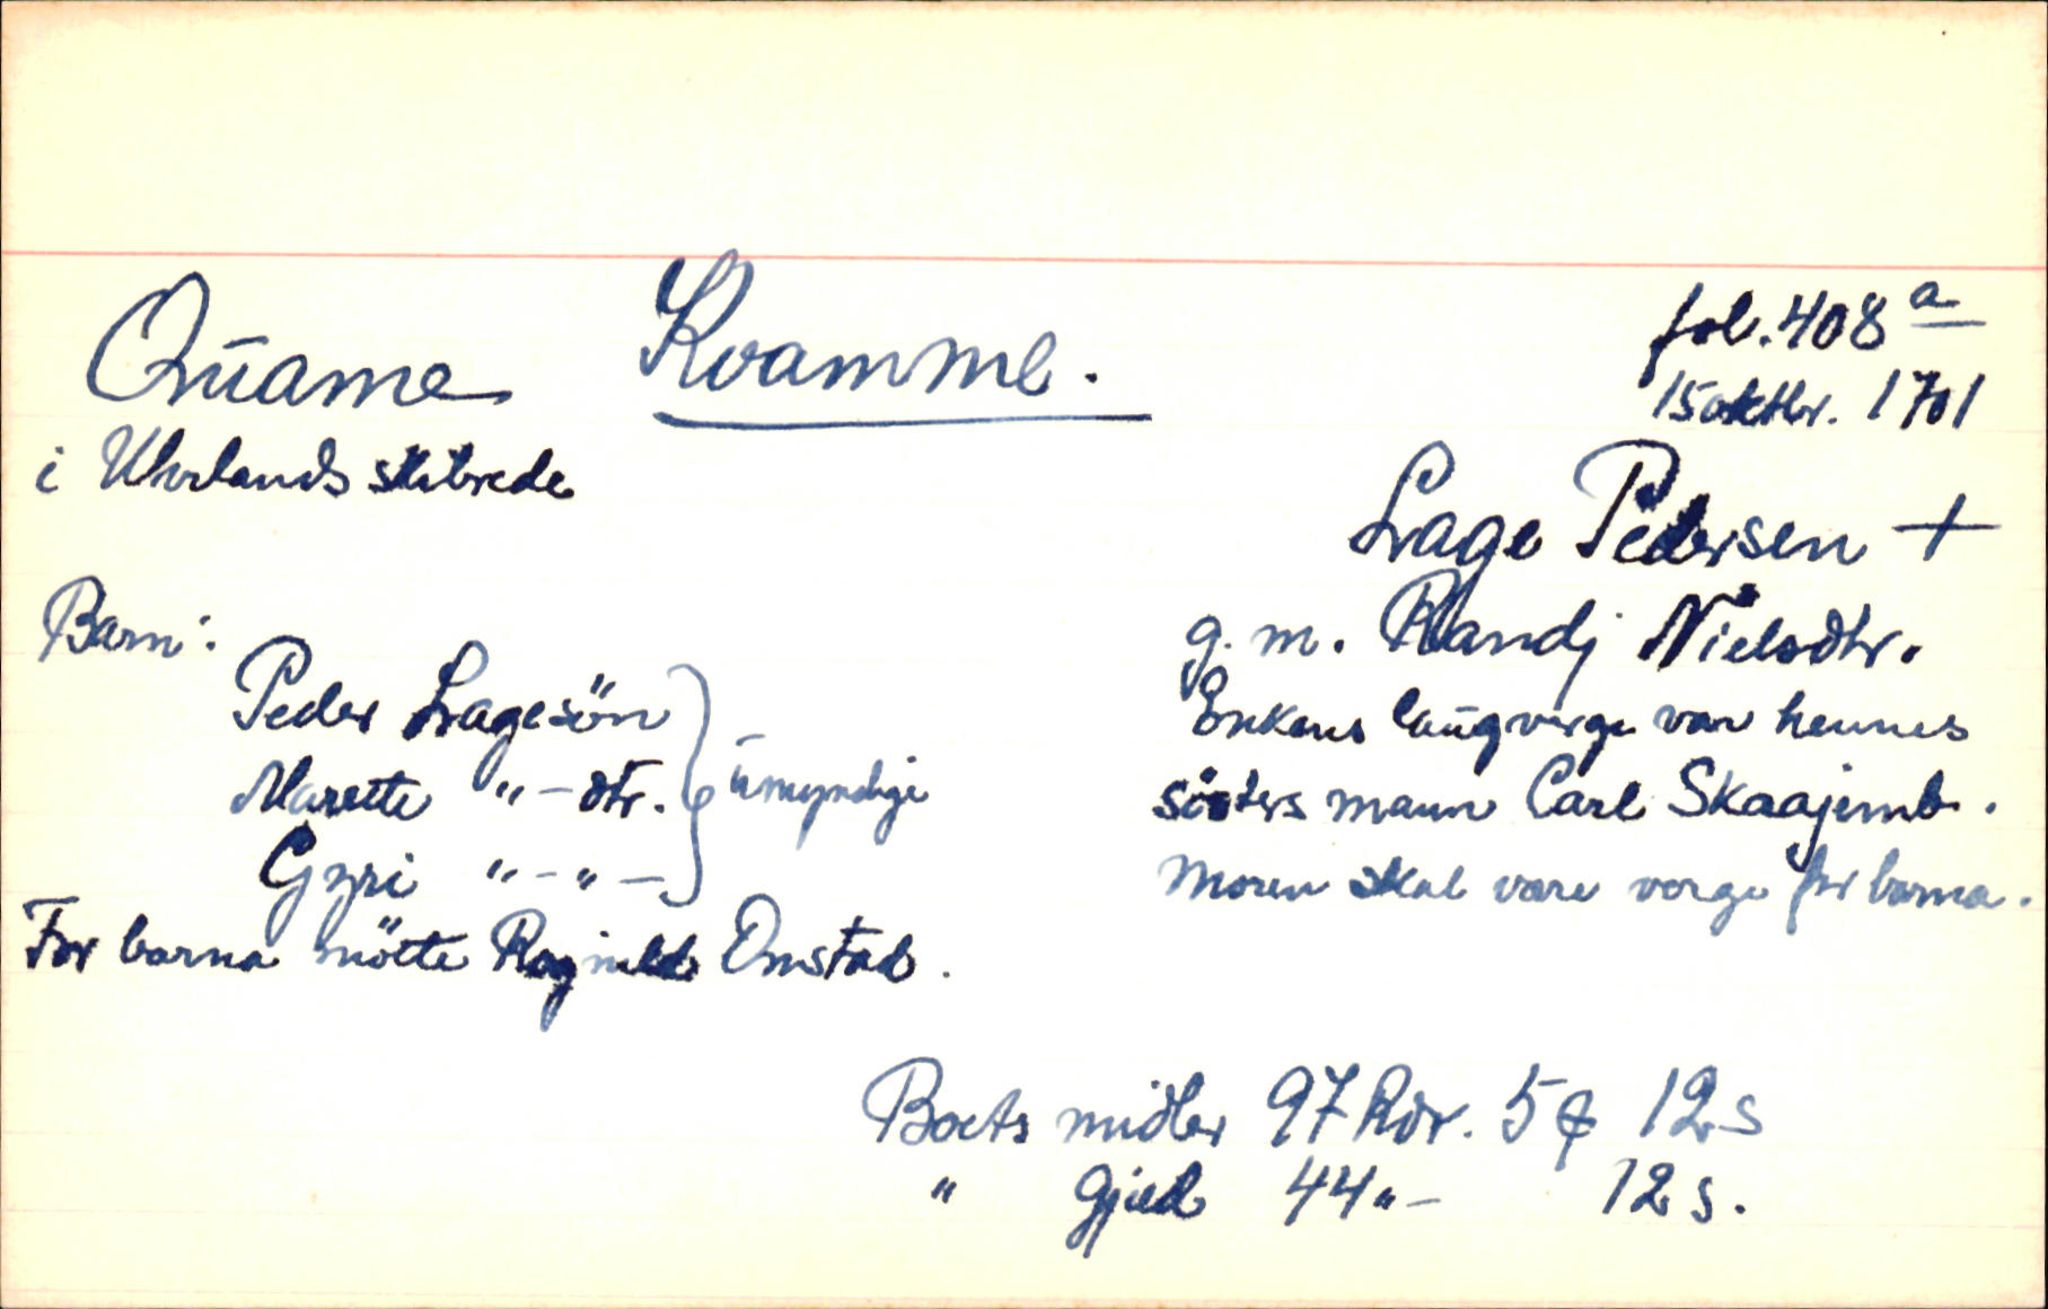 Qŭame Kvamme. fol. 408 a
15 oktbr. 1701
i Uhrlands skibrede
Lage Pedersen +
g. m. Randj Nielsdtr.
Enkens laŭgverge var hennes
sösters mann Carl Skaajemb.
Moren skal være verge for barna.
Barn:
Peder Lagesön
Marette "-dtr. } ŭmyndige
Gyri "-"-
For barna mötte Ragnild Onstad.
Boets midler 97 Rdr. 5 ₰ 12 s
" Gjæld 44 "- 12 s.